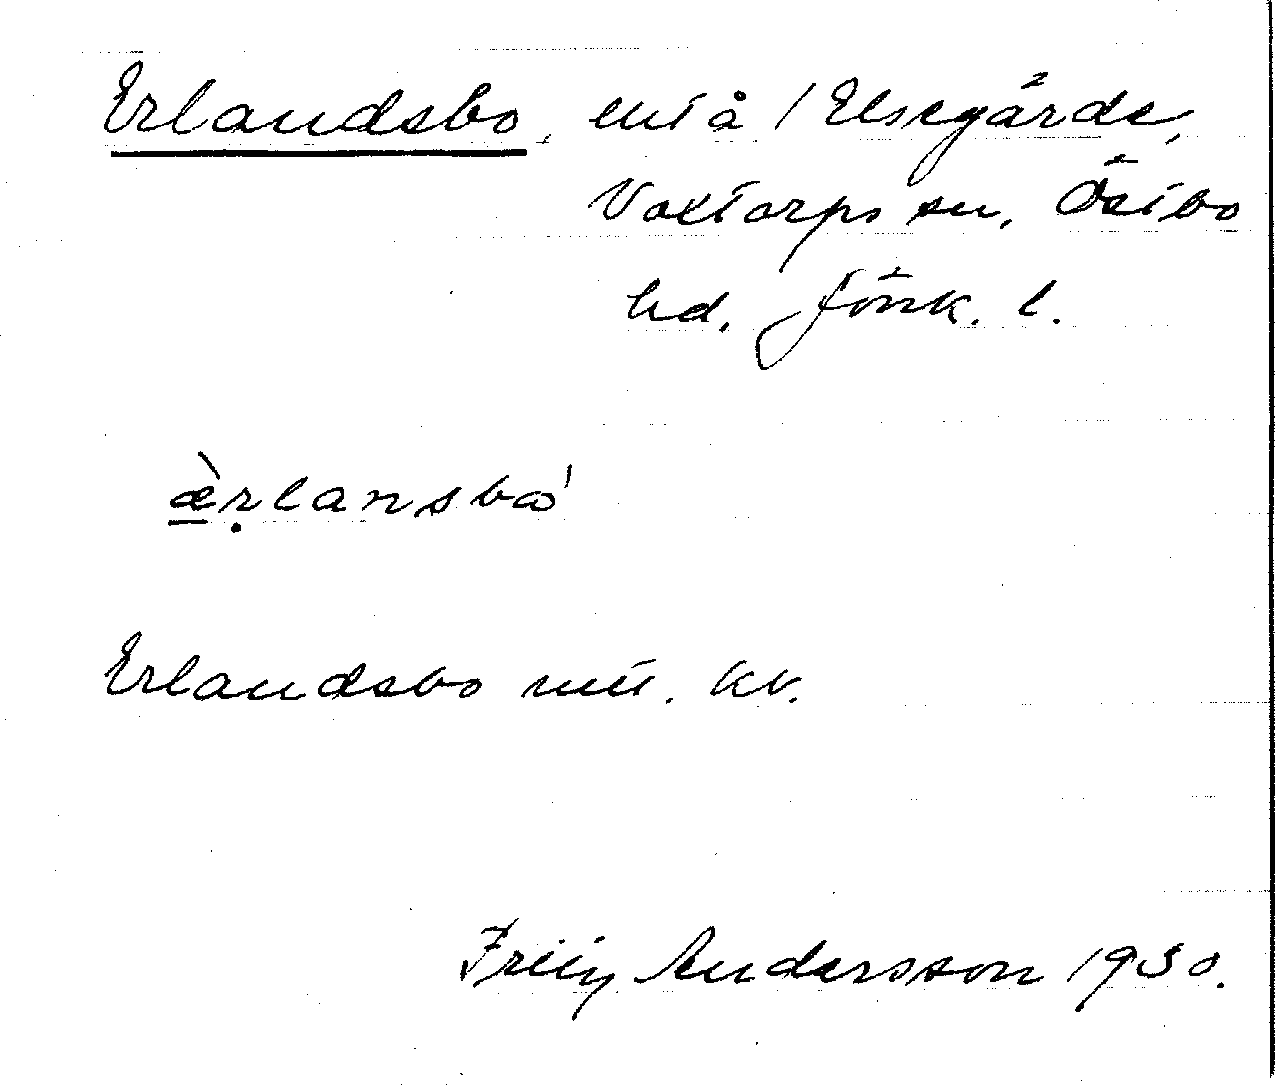 Erlandsbo, ent å 1 Elsegårde,
Voxtorps sn, Östbo
hd. Jönk. l.
æ̀rlansbω'
Erlandsbo mtl. kv.
Fritz Andersson 1930.